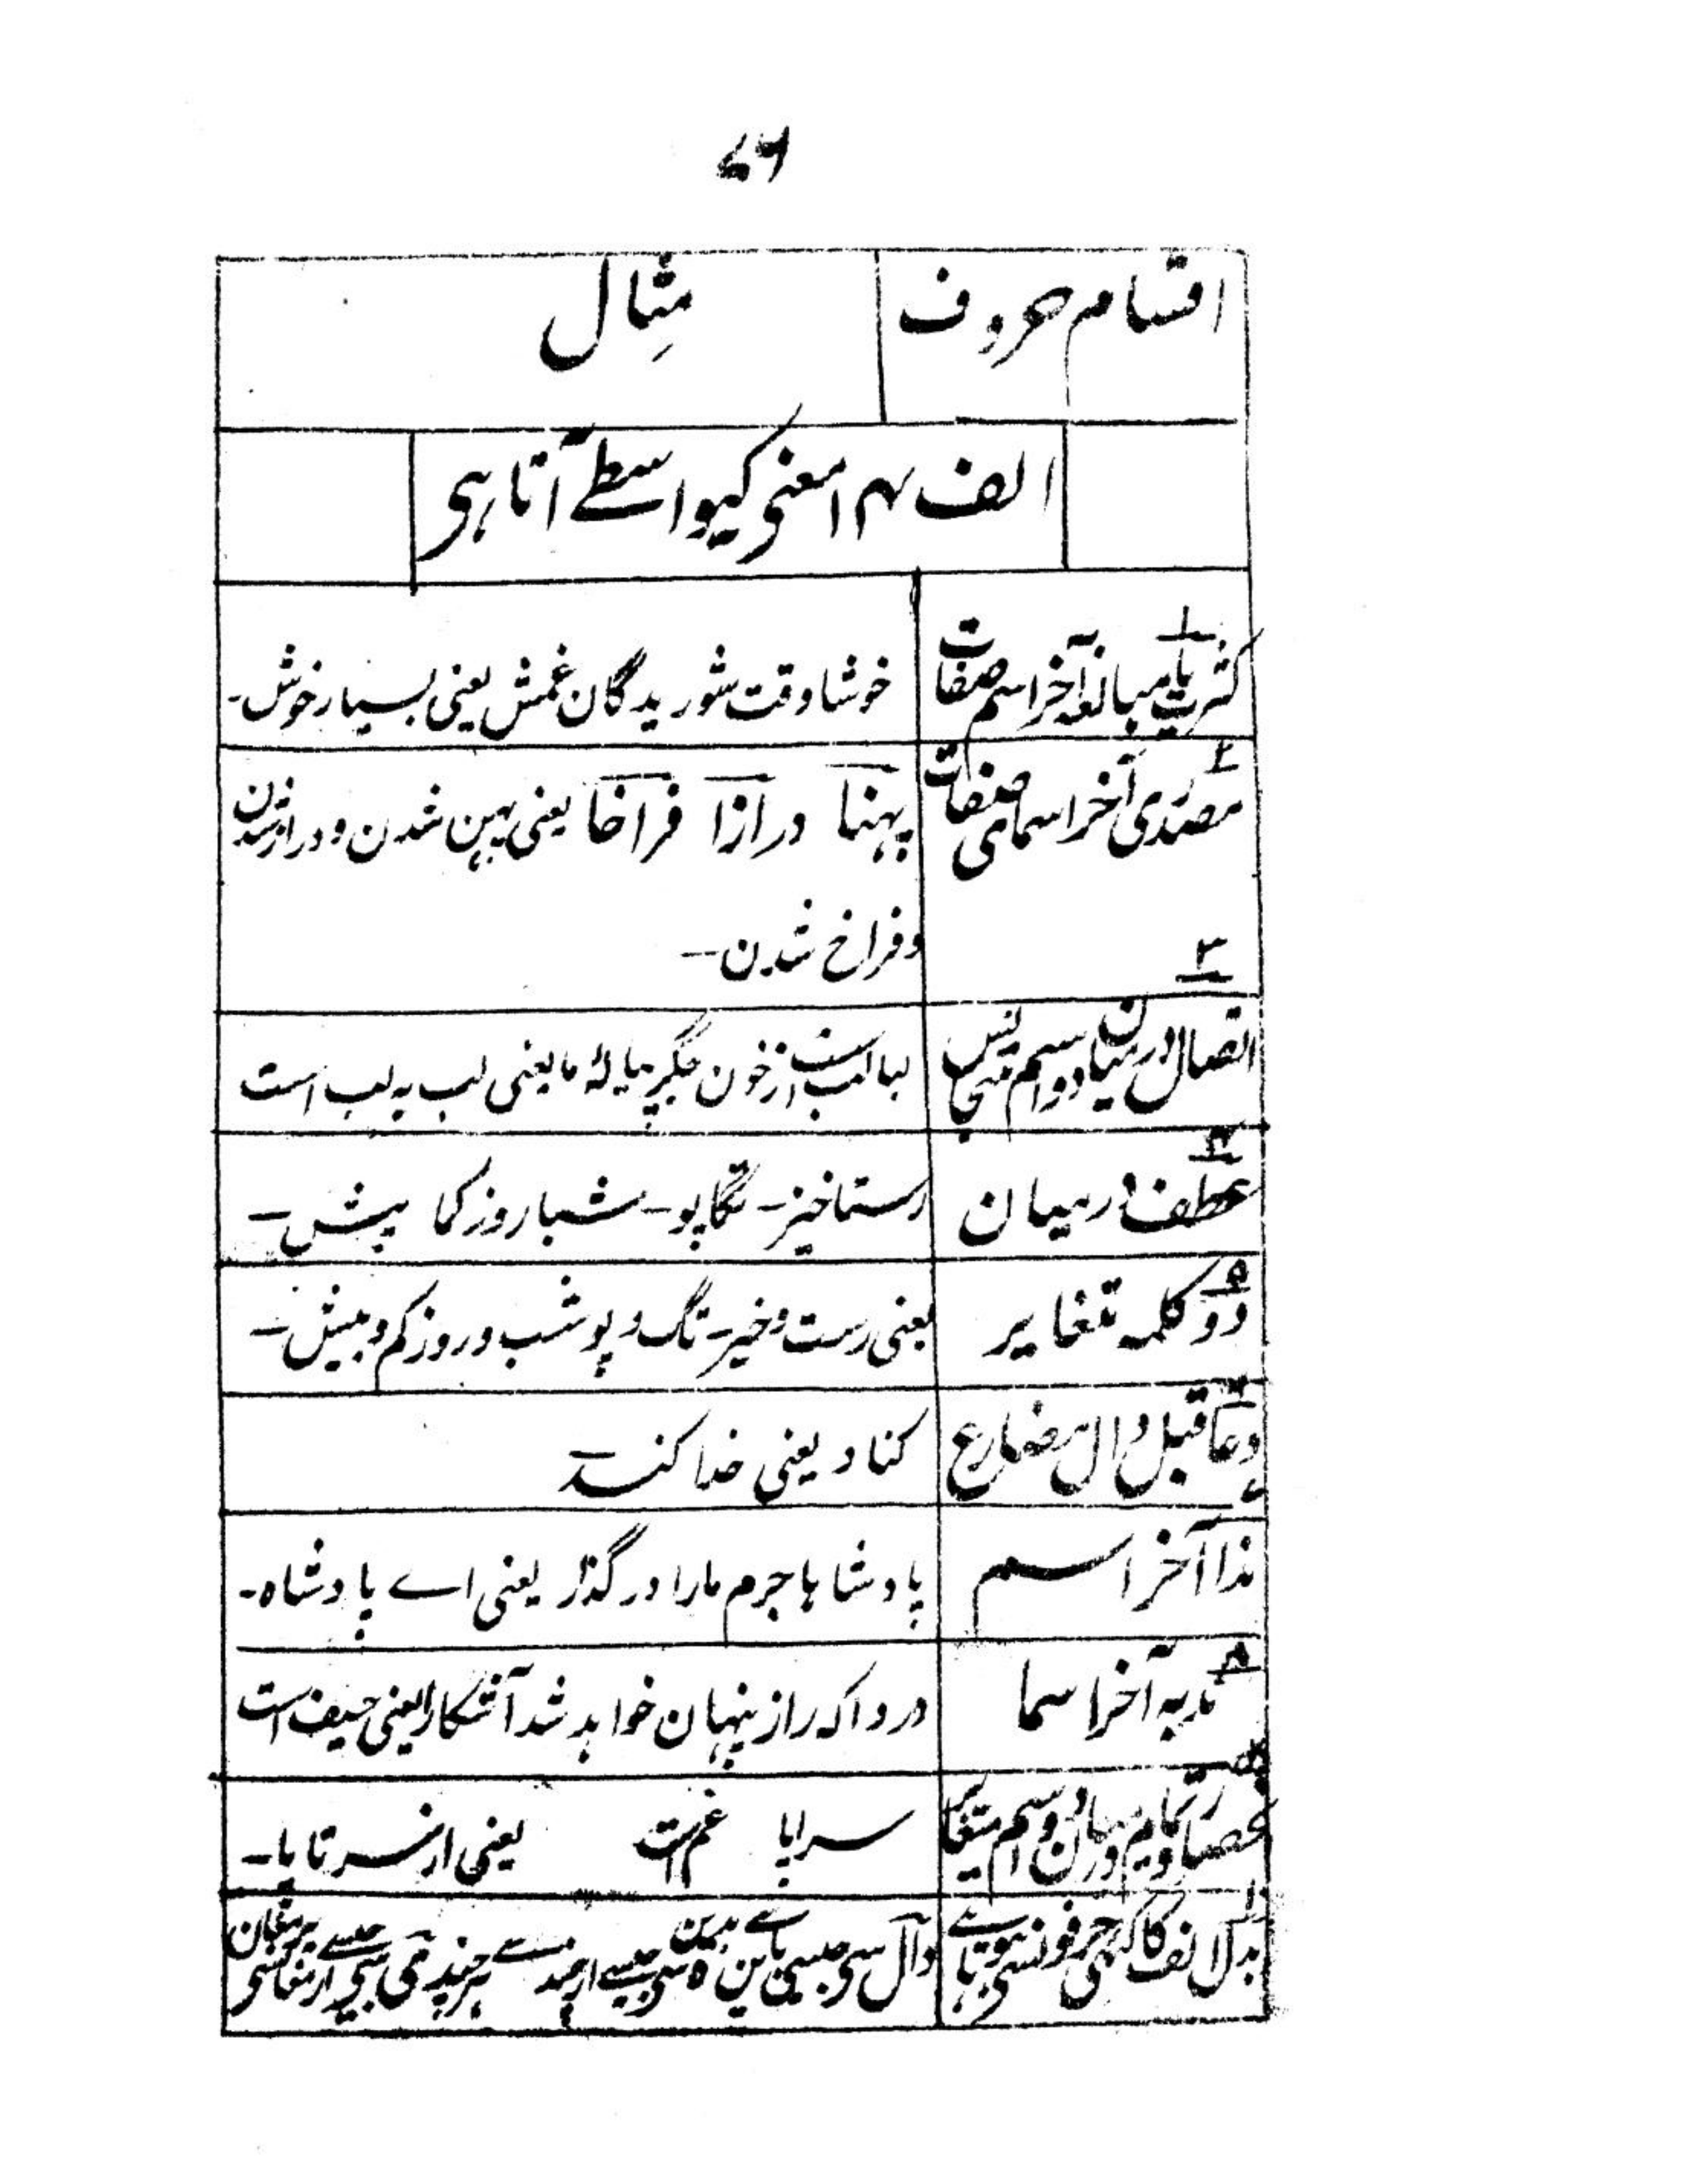 ۷۶
اقسام حروف | مثال
الف ۱۴ معنی کیواسطے آتا ہی
۱
کثرت یا مبالغہ آخر اسم صفات | خوشا وقت شوریدگان غمش یعنی بسیار خوش۔
۲
مصدری آخر اسمای صفات | پہنا درازا فراخا یعنی پہن شدن و دراز شدن
وفراخ شدن۔
۳
اتصال درمیان دو اسم متجانس | لبالب است از خون جگر پیالۂ ما یعنی لب بہ لب است
۴
عطف درمیان | رستاخیز۔ تگاپو۔ شباروز کما بیش۔
۵
دو کلمہ متغایر | یعنی رست وخیز۔ تگ و پو شب و روز کم و بیش۔
۶
دعا قبل دال مضارع | کناد یعنی خدا کند
ندا آخر اسم | پادشاہا جرم مارا در گذار یعنی اے پادشاہ۔
۸
ندبہ آخر اسما | دردا کہ راز پنہان خواہد شد آشکارا یعنی حیف است
درمیان دو اسم متغایر | سراپا غم است یعنی از سر تا پا۔
بدل الف کا کئی حرفونسی ہوتا ہے | دال سی جیسی باین بدین ہ سی جیسے